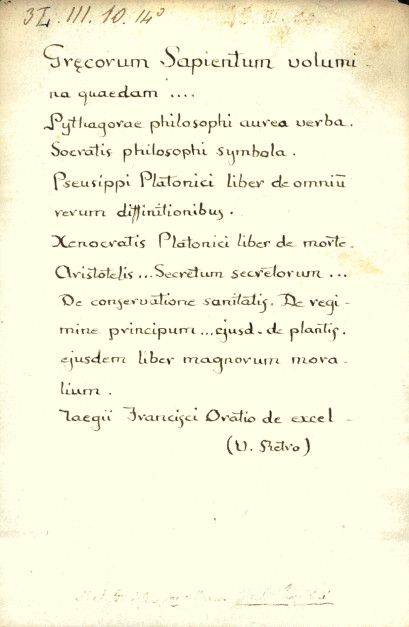 32. III. 10. 14º
Gręcorum Sapientum volumi-
na quaedam ....
Pythagorae philosophi aurea verba.
Socratis philosophi symbola.
Pseusippi Platonici liber de omniū
rerum diffinitionibus.
Xenocratis Platonici liber de morte.
Aristotelis ... Secretum secretorum ...
De conservatione sanitatis. De regi-
mine principum ... ejusd. de plantis.
ejusdem liber magnorum mora-
lium.
Taegii Francisci Oratio de excel-
(V. Retro)